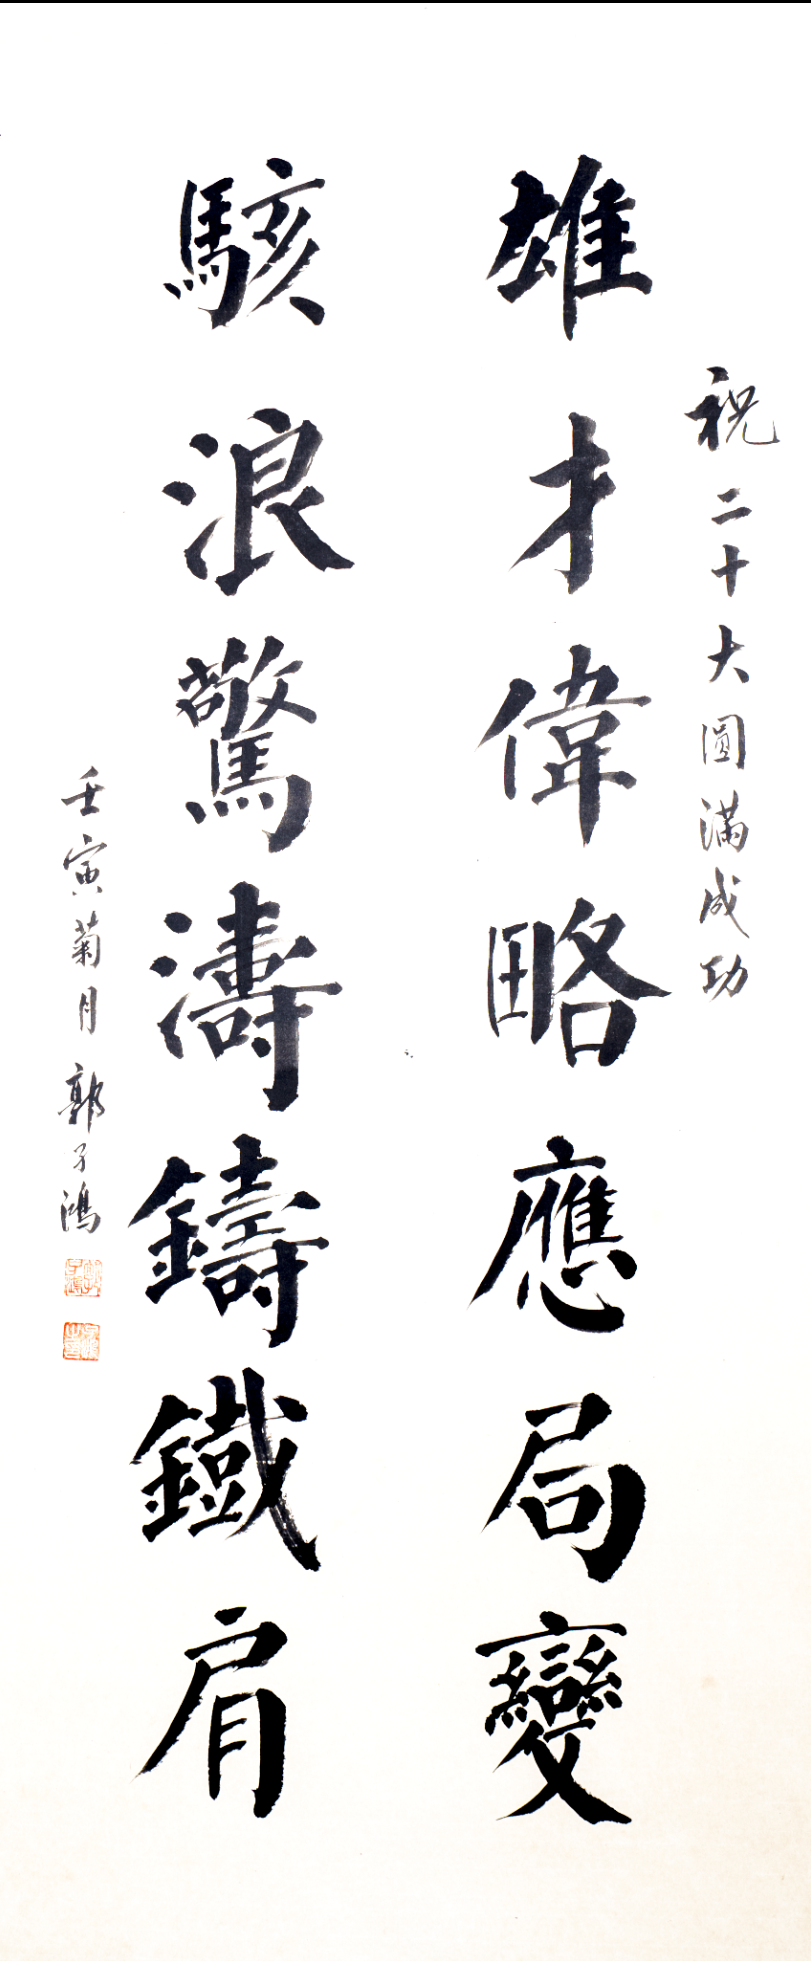 祝二十大圓滿成功
雄才偉略應局變
駭浪驚濤鑄鐵肩
壬寅菊月郭子鴻